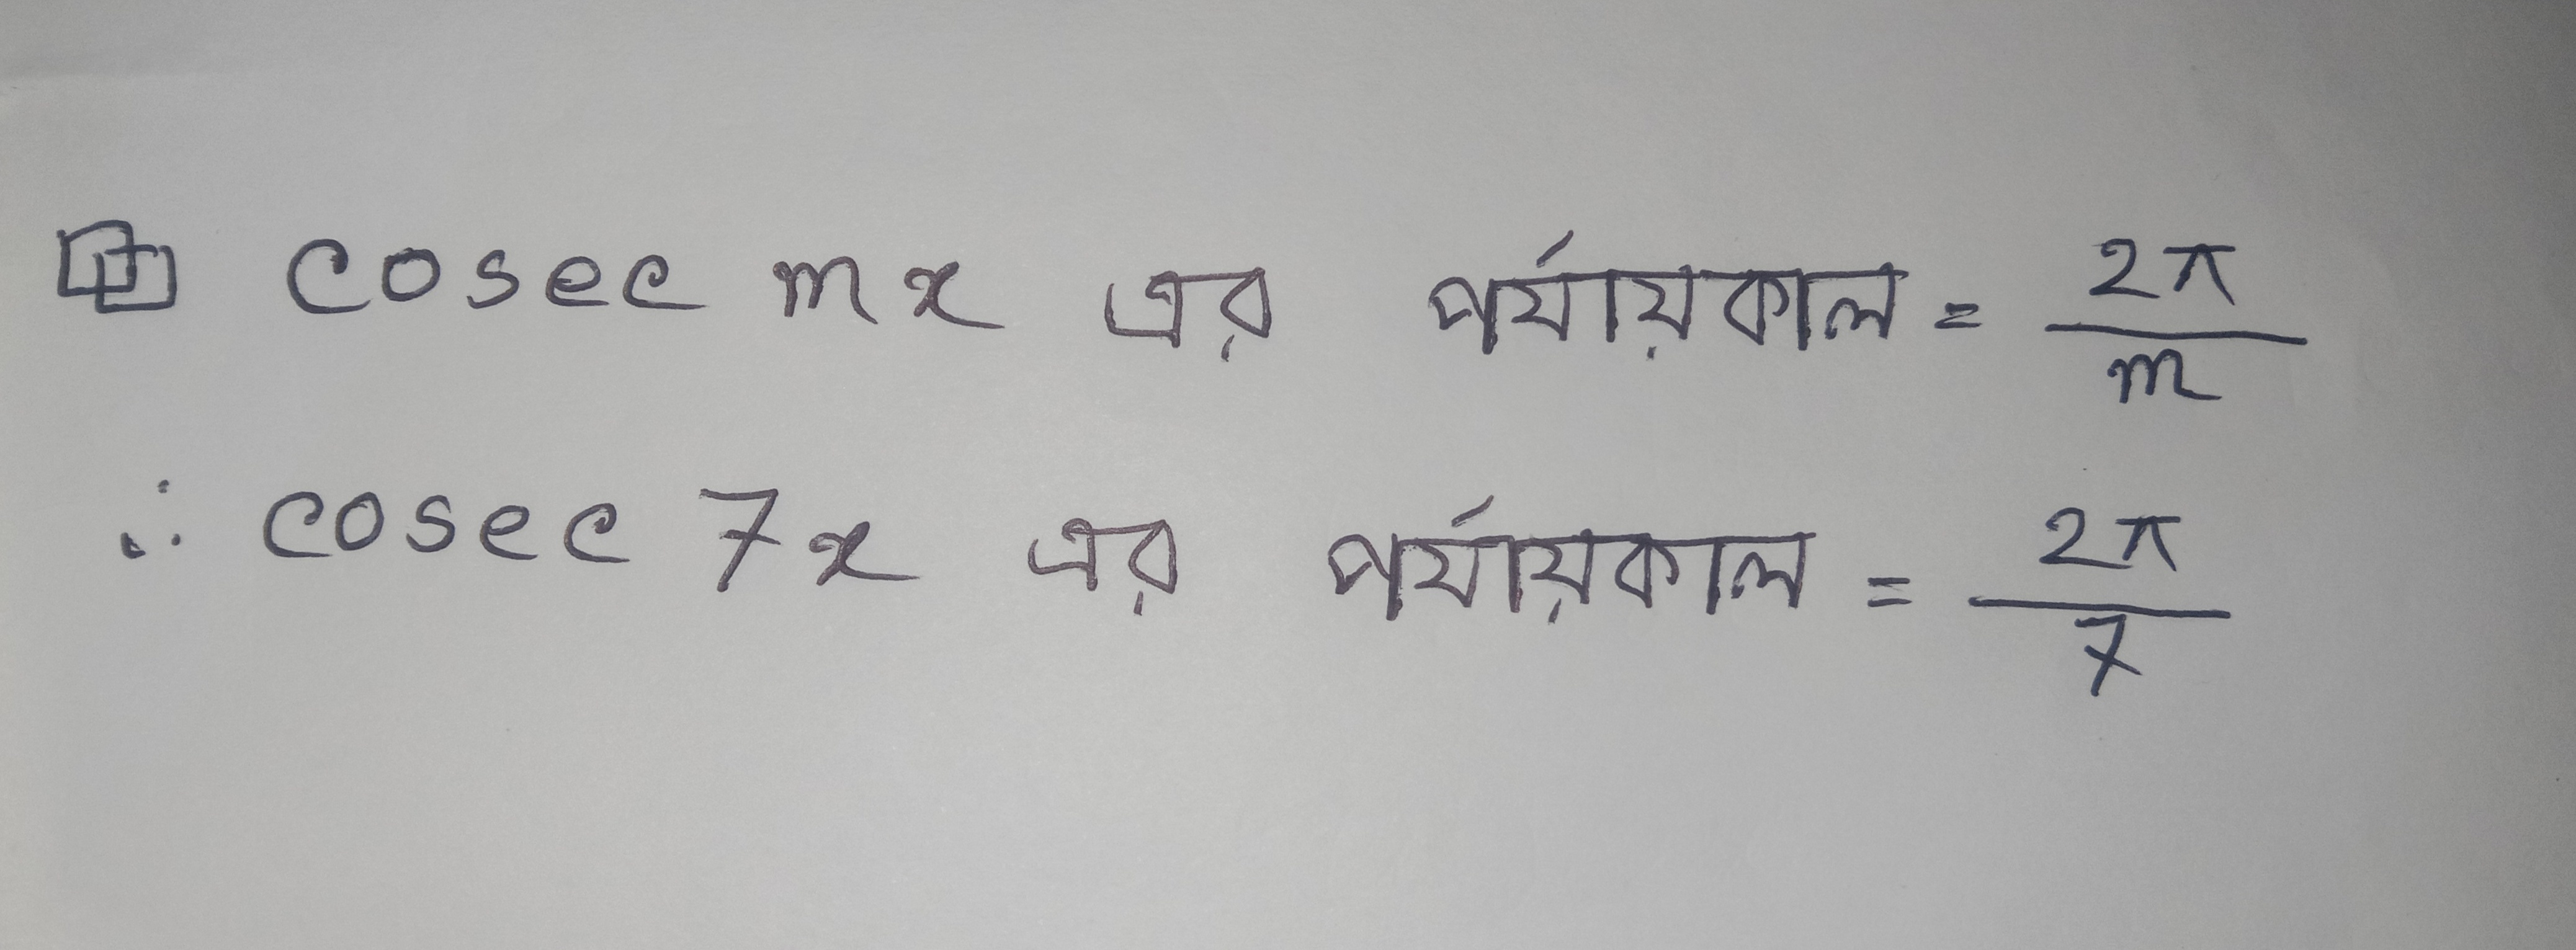 cosec mx এর পর্যায়কাল = 2π/m
∴ cosec 7x এর পর্যায়কাল = 2π/7